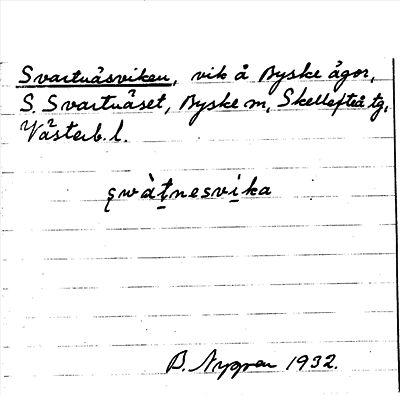 Svartnäsviken, vik å Byske ägor,
S. Svartnäset, Byske sn, Skellefteå tg,
Västerb. l.
şwàṯnesvi̱ka
B. Nygren 1932.